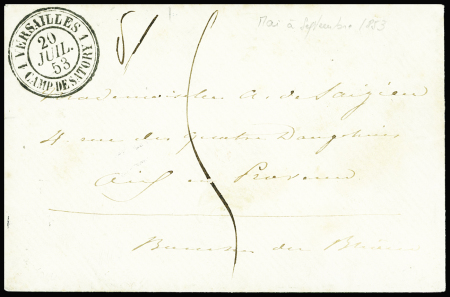 1 VERSAILLES 1
20
JUIL.
53
CAMP DE SATORY
Mai à Septembre 1853
Mademoiselle A. de
4 rue des quatre Dauphins
Aix en Provence
du Rhône